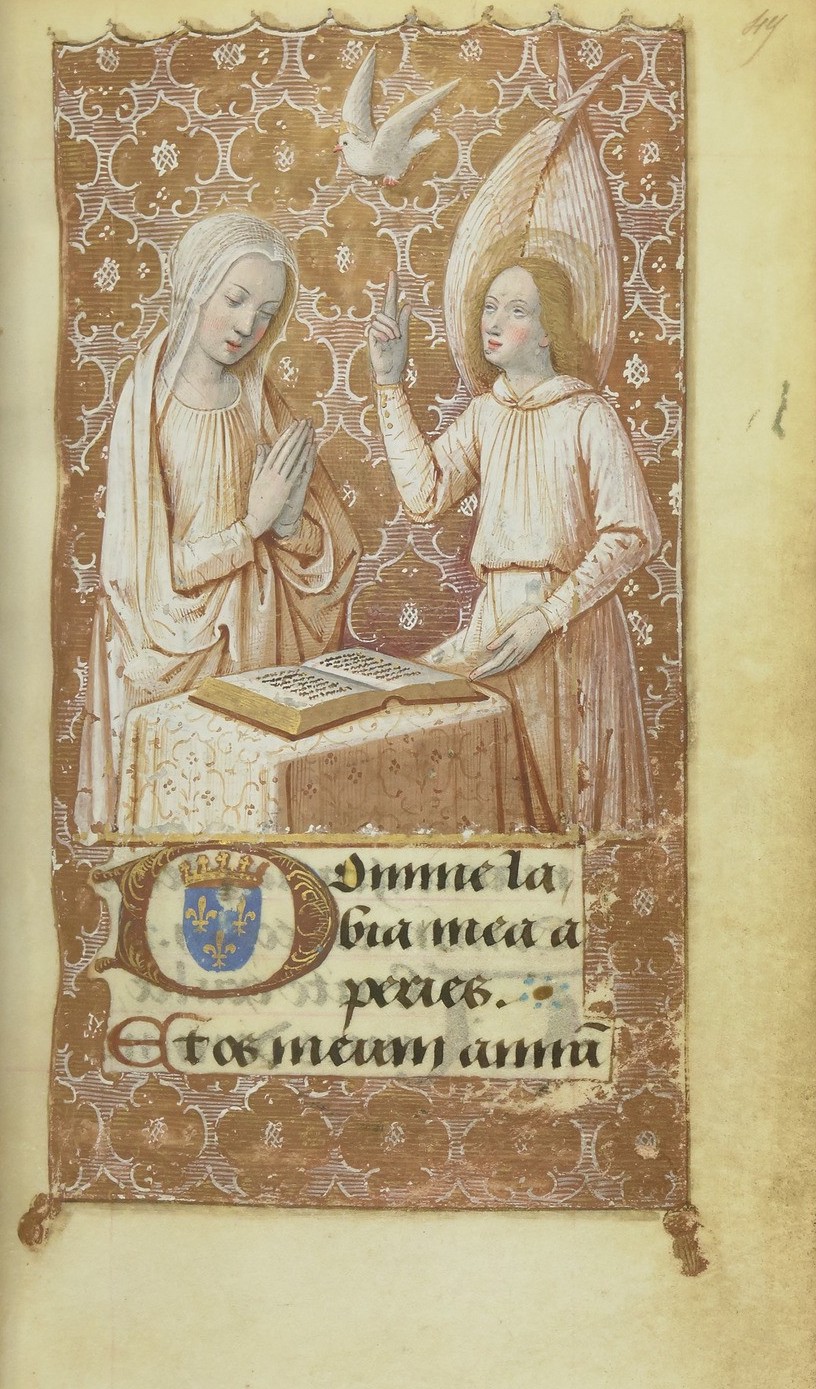 Domine la
bia mea a
peries.
Et os meum annūā